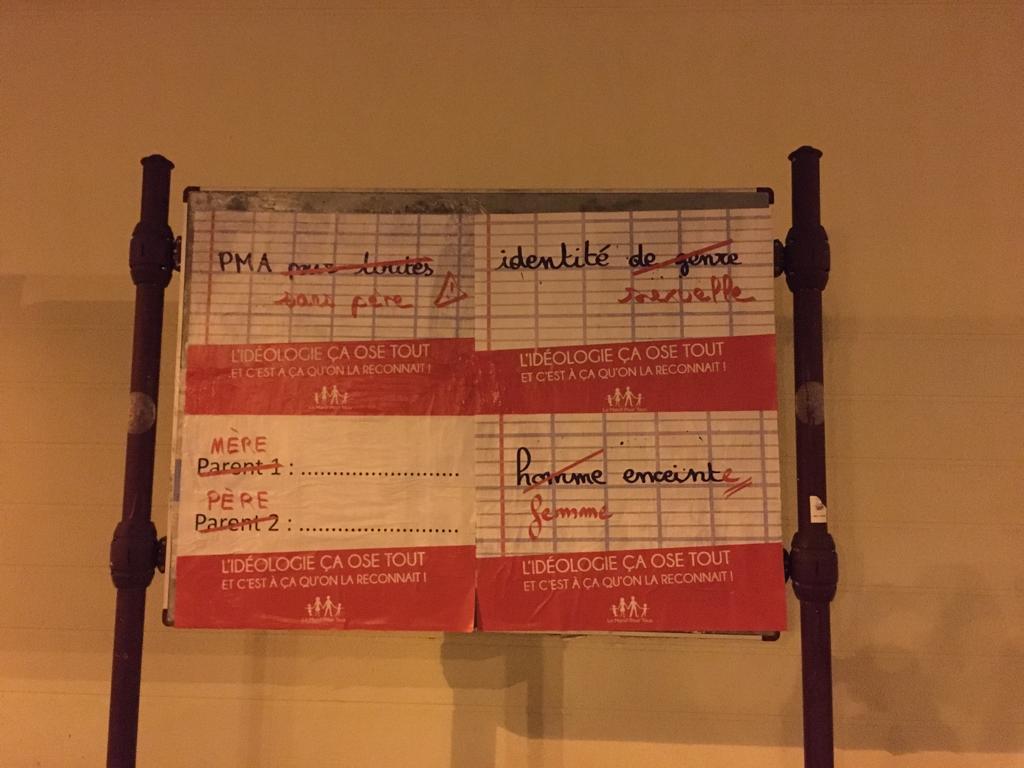 PMA pour toutes
sans père
L'IDÉOLOGIE ÇA OSE TOUT
ET C'EST À ÇA QU'ON LA RECONNAIT !
La Manif Pour Tous
identité de genre
sexuelle
L'IDÉOLOGIE ÇA OSE TOUT
ET C'EST À ÇA QU'ON LA RECONNAIT !
La Manif Pour Tous
MÈRE
Parent 1 : ..............................
PÈRE
Parent 2 : ..............................
L'IDÉOLOGIE ÇA OSE TOUT
ET C'EST À ÇA QU'ON LA RECONNAIT !
La Manif Pour Tous
homme enceinte
femme
L'IDÉOLOGIE ÇA OSE TOUT
ET C'EST À ÇA QU'ON LA RECONNAIT !
La Manif Pour Tous